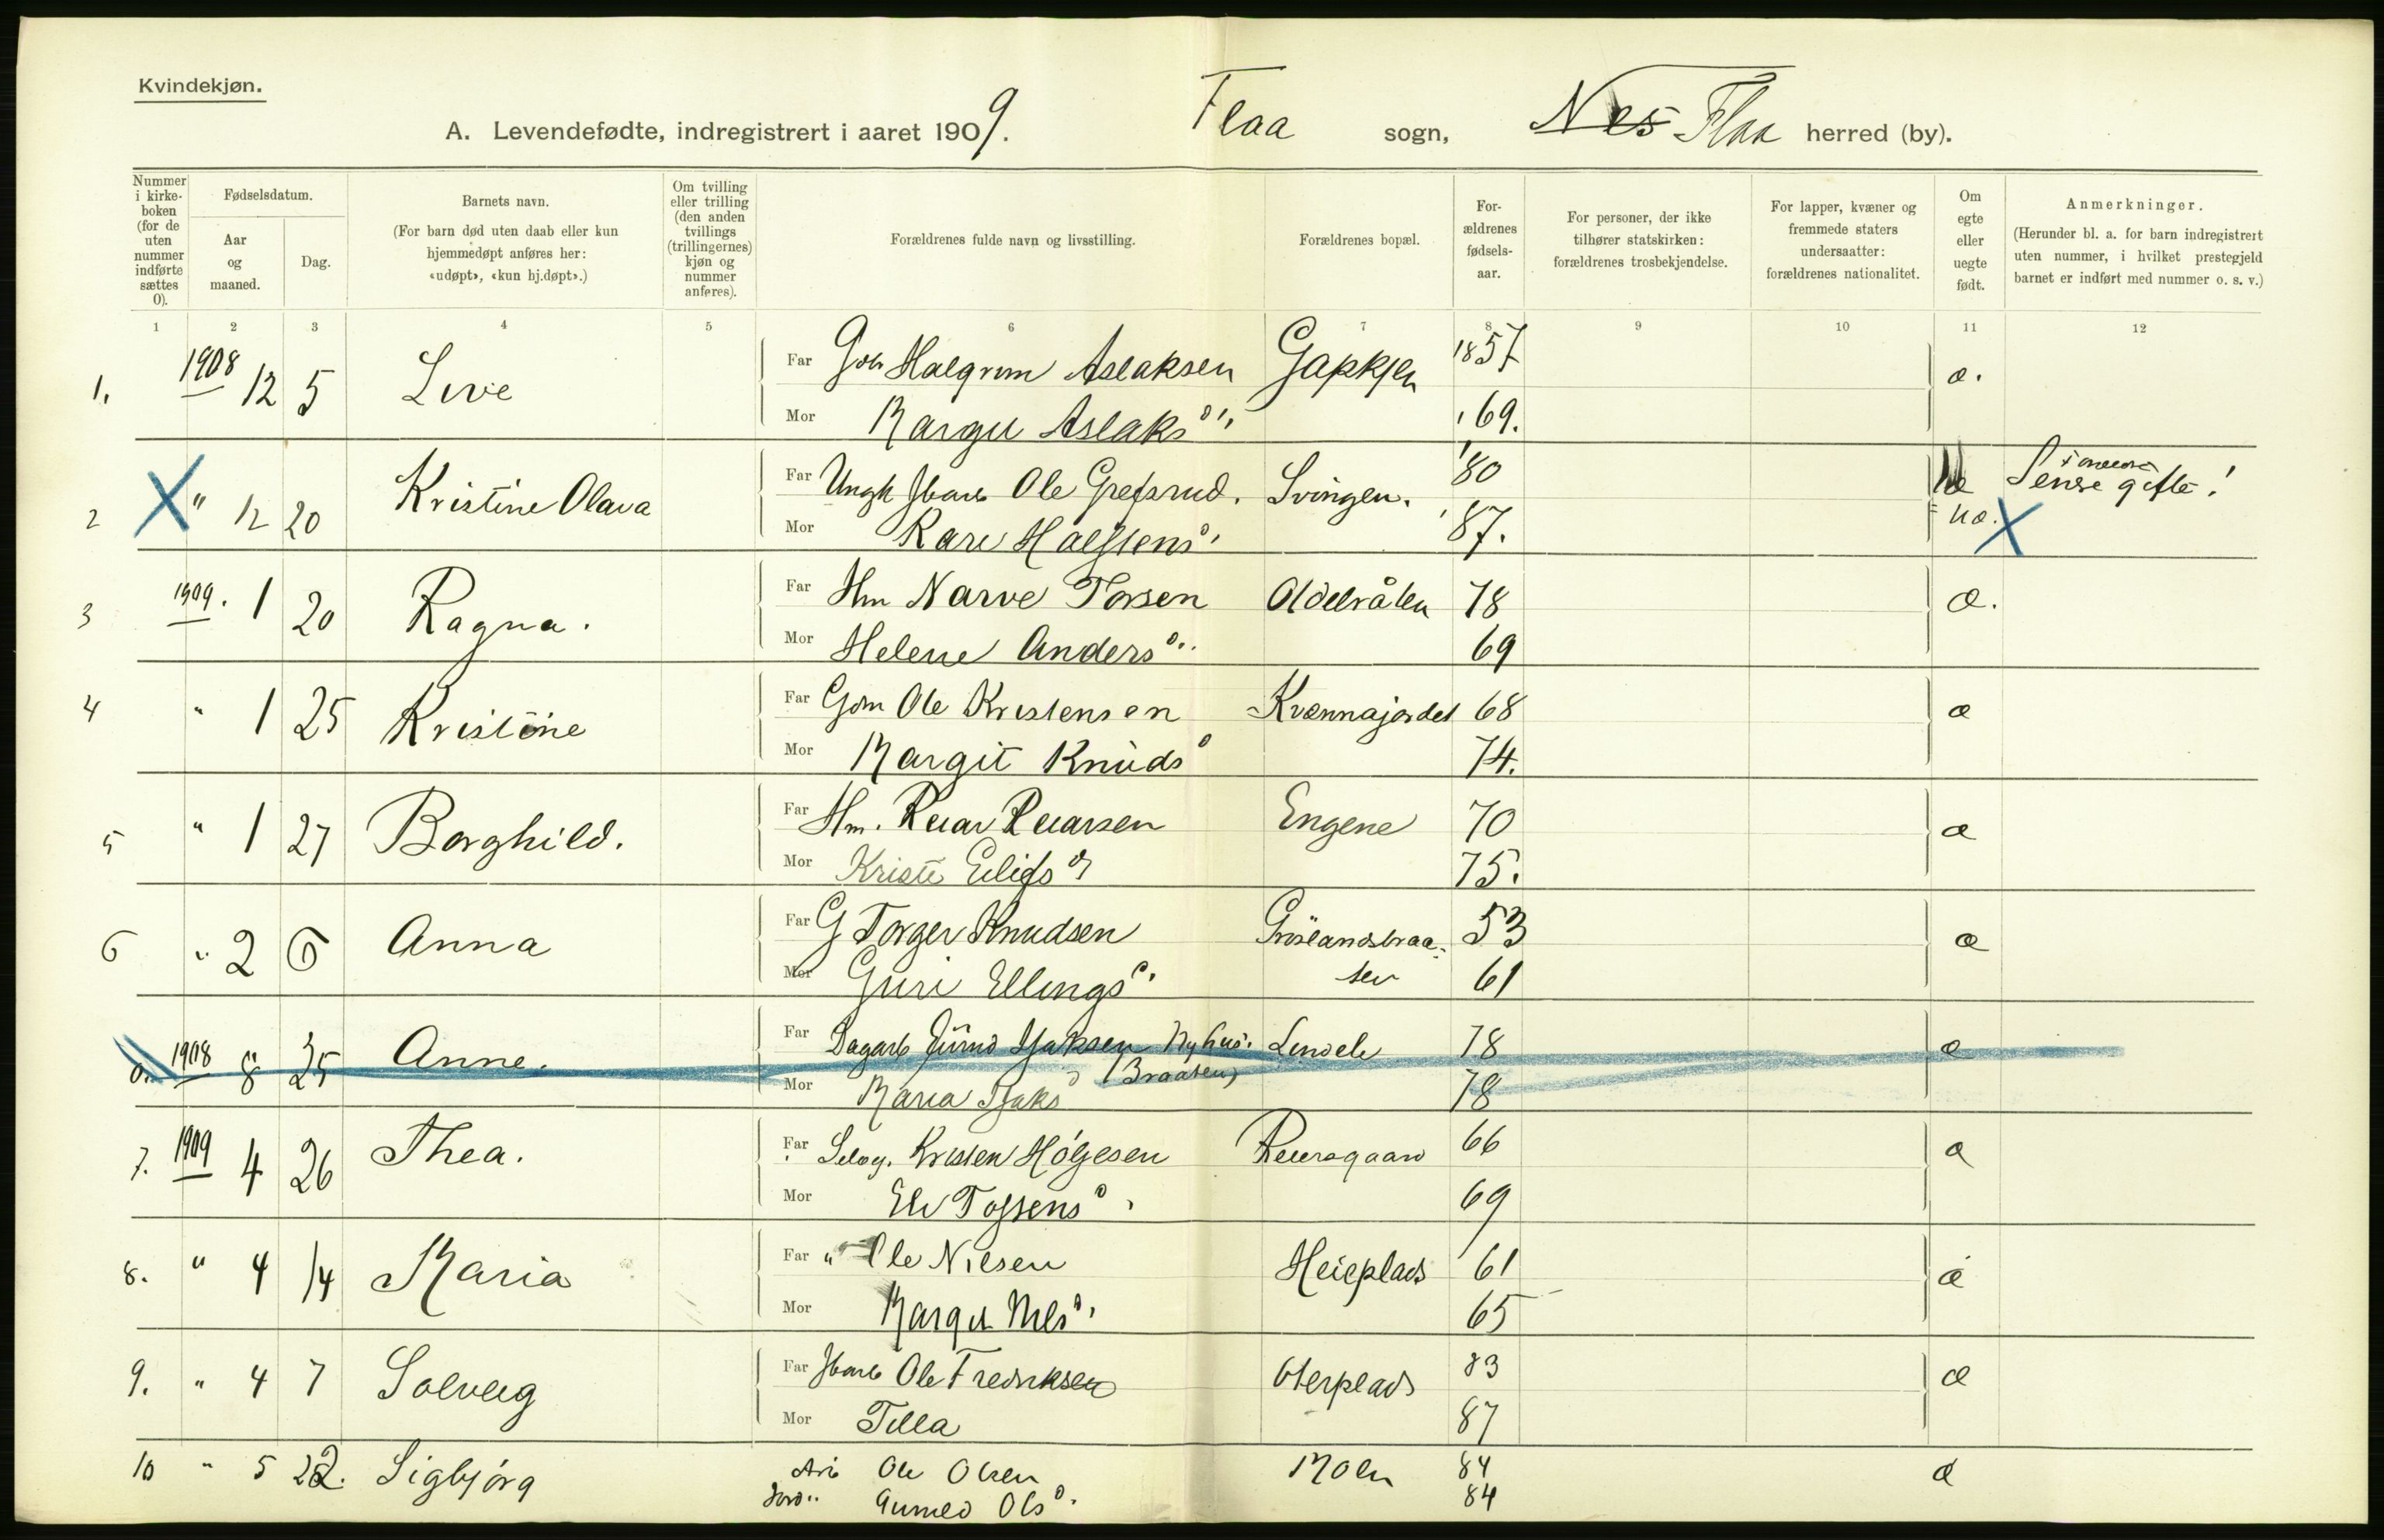 Kvindekjøn.
A. Levendefødte, indregistrert i aaret 1909. Flaa sogn, Nes Flaa herred (by).
Nummer i kirke-boken (for de uten nummer indførte sættes 0).
Fødselsdatum.
Aar og maaned.
Dag.
Barnets navn.
(For barn død uten daab eller kun hjemmedøpt anføres her: «udøpt», «kun hj.døpt».)
Om tvilling eller trilling (den anden tvillings (trillingernes) kjøn og nummer anføres).
Forældrenes fulde navn og livsstilling.
Forældrenes bopæl.
For-ældrenes fødsels-aar.
For personer, der ikke tilhører statskirken: forældrenes trosbekjendelse.
For lapper, kvæner og fremmede staters undersaatter: forældrenes nationalitet.
Om egte eller uegte født.
Anmerkninger.
(Herunder bl. a. for barn indregistrert uten nummer, i hvilket prestegjeld barnet er indført med nummer o. s. v.)
1 2 3 4 5 6 7 8 9 10 11 12
1. 1908 12 5 Live Far Halgrim Aslaksen Gapkjen 1857 æ.
Mor Margit Aslaksd. 69.
2 " 12 20 Kristine Olava Far Ungk Ole Grefsrud. Svingen. '80 Senere gifte!
Mor Kari Halstensd. '87. uæ.
3 1909. 1 20 Ragna. Far Hm Narve Torsen 78 æ.
Mor Helene Andersd. 69
4 " 1 25 Kristine Far Gdm Ole Kristensen Kvennajordet 68 æ
Mor Margit Knudsd 74.
5 " 1 27 Borghild. Far Hm. Reiar Reiarsen Engene 70 æ
Mor Kristi Eilifsd 75.
6 " 2 6 Anna Far G Torger Knudsen Gröslandsbraa- 53 æ
Mor Guri Ellingsd. ten 61
0. 1908 8 25 Anne. Far Dagarb Jsaksen Nyhus. 78 æ
(Braaten)
Mor Maria Jsaksd 78
7. 1909 4 26 Thea. Far Selveg. Kristen Holgesen Reiersgaard 66 æ
Mor Eli Tostensd. 69
8. " 4 14 Maria Far " Ole Nilsen Heieplads 61 æ
Mor Margit Nilsd. 65
9. " 4 7 Solveig Far Jbarb Ole Fredriksen Oterplads 83 æ
Mor Tilla 87
10 " 5 22. Sigbjörg Arb Ole Olsen Moen 84 æ
Gunild Olsd. 84